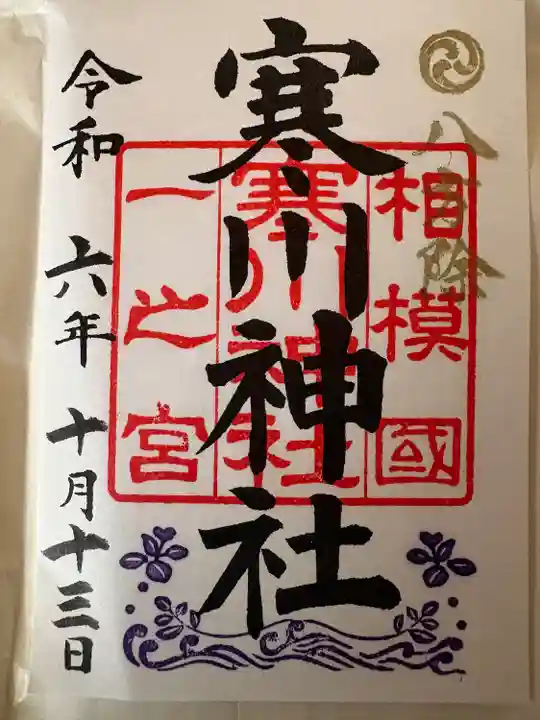 八方除
寒川神社
相模國
寒川神社
一之宮
令和 六年 十月十三日